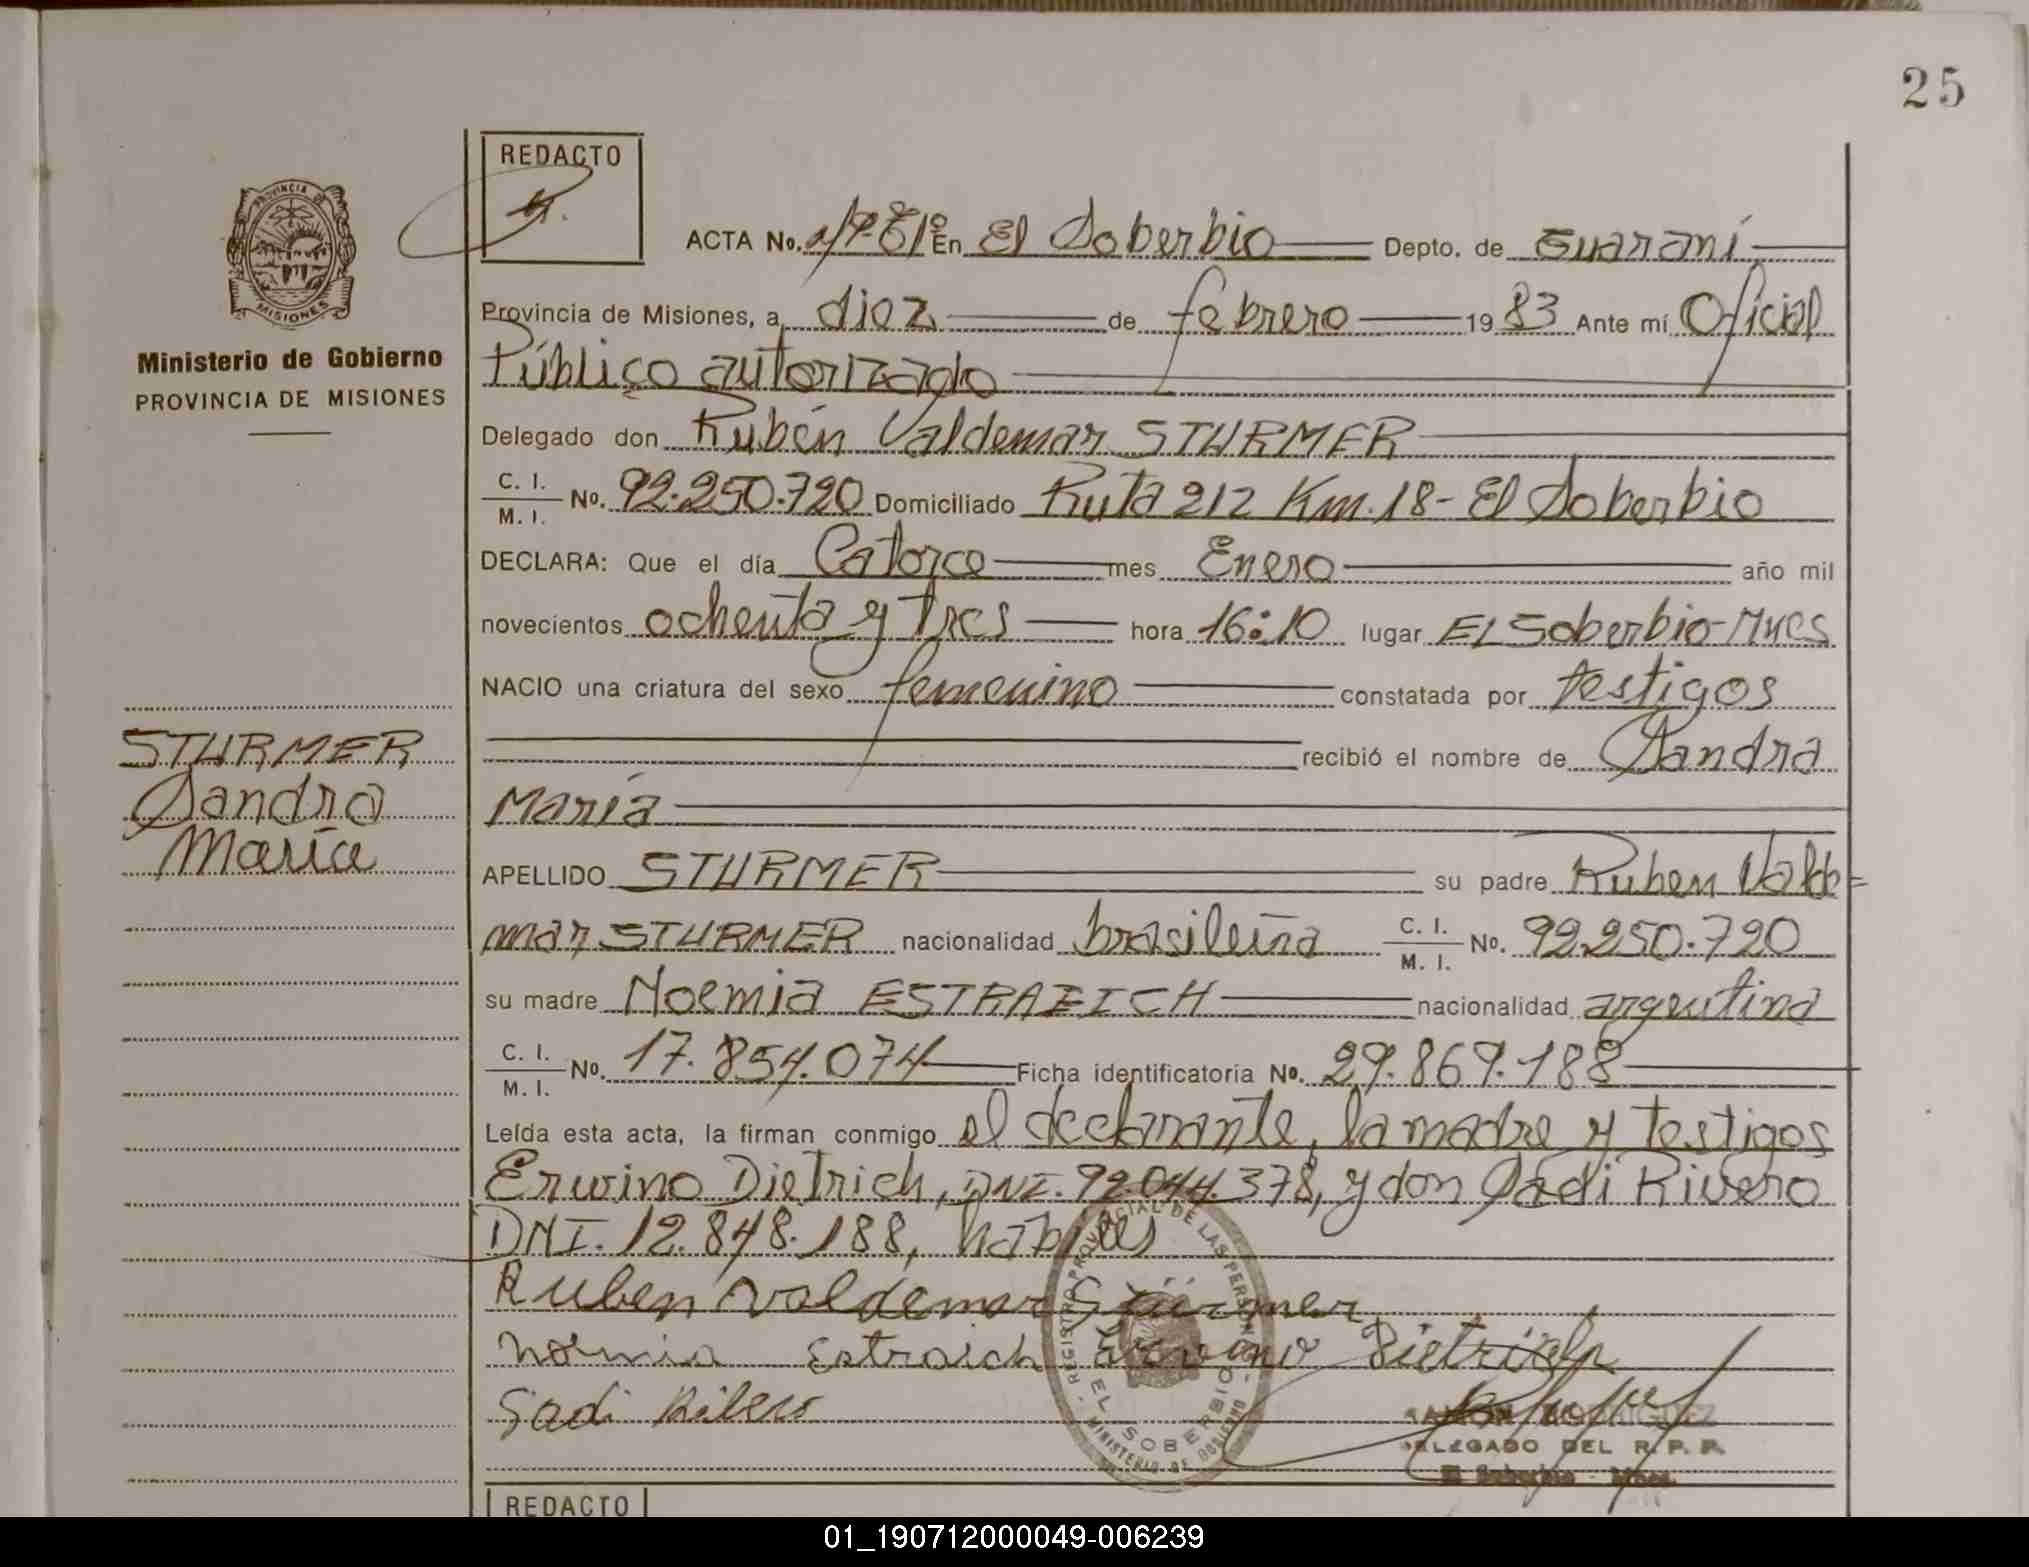 25
REDACTO
PROVINCIA DE
MISIONES
Ministerio de Gobierno
PROVINCIA DE MISIONES
ACTA No. En El Soberbio Depto. de Guaraní
Provincia de Misiones, a diez de febrero 1983 Ante mí Oficial
Público autorizado
Delegado don Rubén Valdemar STURMER
C. I.
M. I. No. 92.250.720 Domiciliado Ruta 212 Km. 18- El Soberbio
DECLARA: Que el día Catorce mes Enero año mil
novecientos ochenta y tres hora 16:10 lugar El Soberbio-Mnes
NACIO una criatura del sexo femenino constatada por testigos
recibió el nombre de Sandra
María
STURMER
Sandra
María
APELLIDO STURMER su padre Ruben Valde=
mar STURMER nacionalidad brasileña C. I.
M. I. No. 92.250.720
su madre Noemia ESTRAEICH nacionalidad argentina
C. I.
M. I. No. 17.854.074 Ficha identificatoria No. 29.869.188
Leída esta acta, la firman conmigo el declarante, la madre y testigos
Erwino Dietrich, DNI. 92.044.378, y don Sadi Rivero
DNI. 12.848.188, habiles
Ruben Valdemar Stürmer
Noemia Estraich Erwino Dietrich
Sadi Ribero
REGISTRO PROVINCIAL DE LAS PERSONAS
EL SOBERBIO
MINISTERIO DE GOBIERNO
RAMON RODRIGUEZ
DELEGADO DEL R. P. P.
El Soberbio - Mnes.
REDACTO
01_190712000049-006239